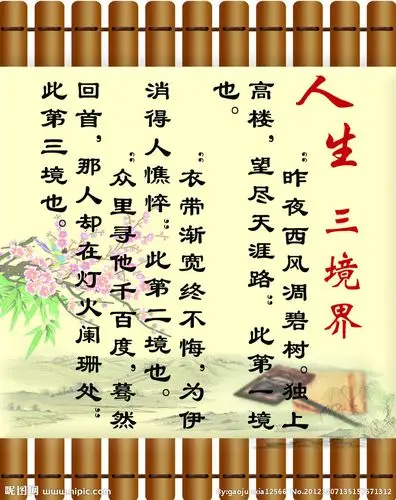 人生 三境界
“昨夜西风凋碧树。独上
高楼，望尽天涯路。”此第一境
也。
“衣带渐宽终不悔，为伊
消得人憔悴。”此第二境也。
“众里寻他千百度，蓦然
回首，那人却在灯火阑珊处”
此第三境也。
昵图网 www.nipic.com